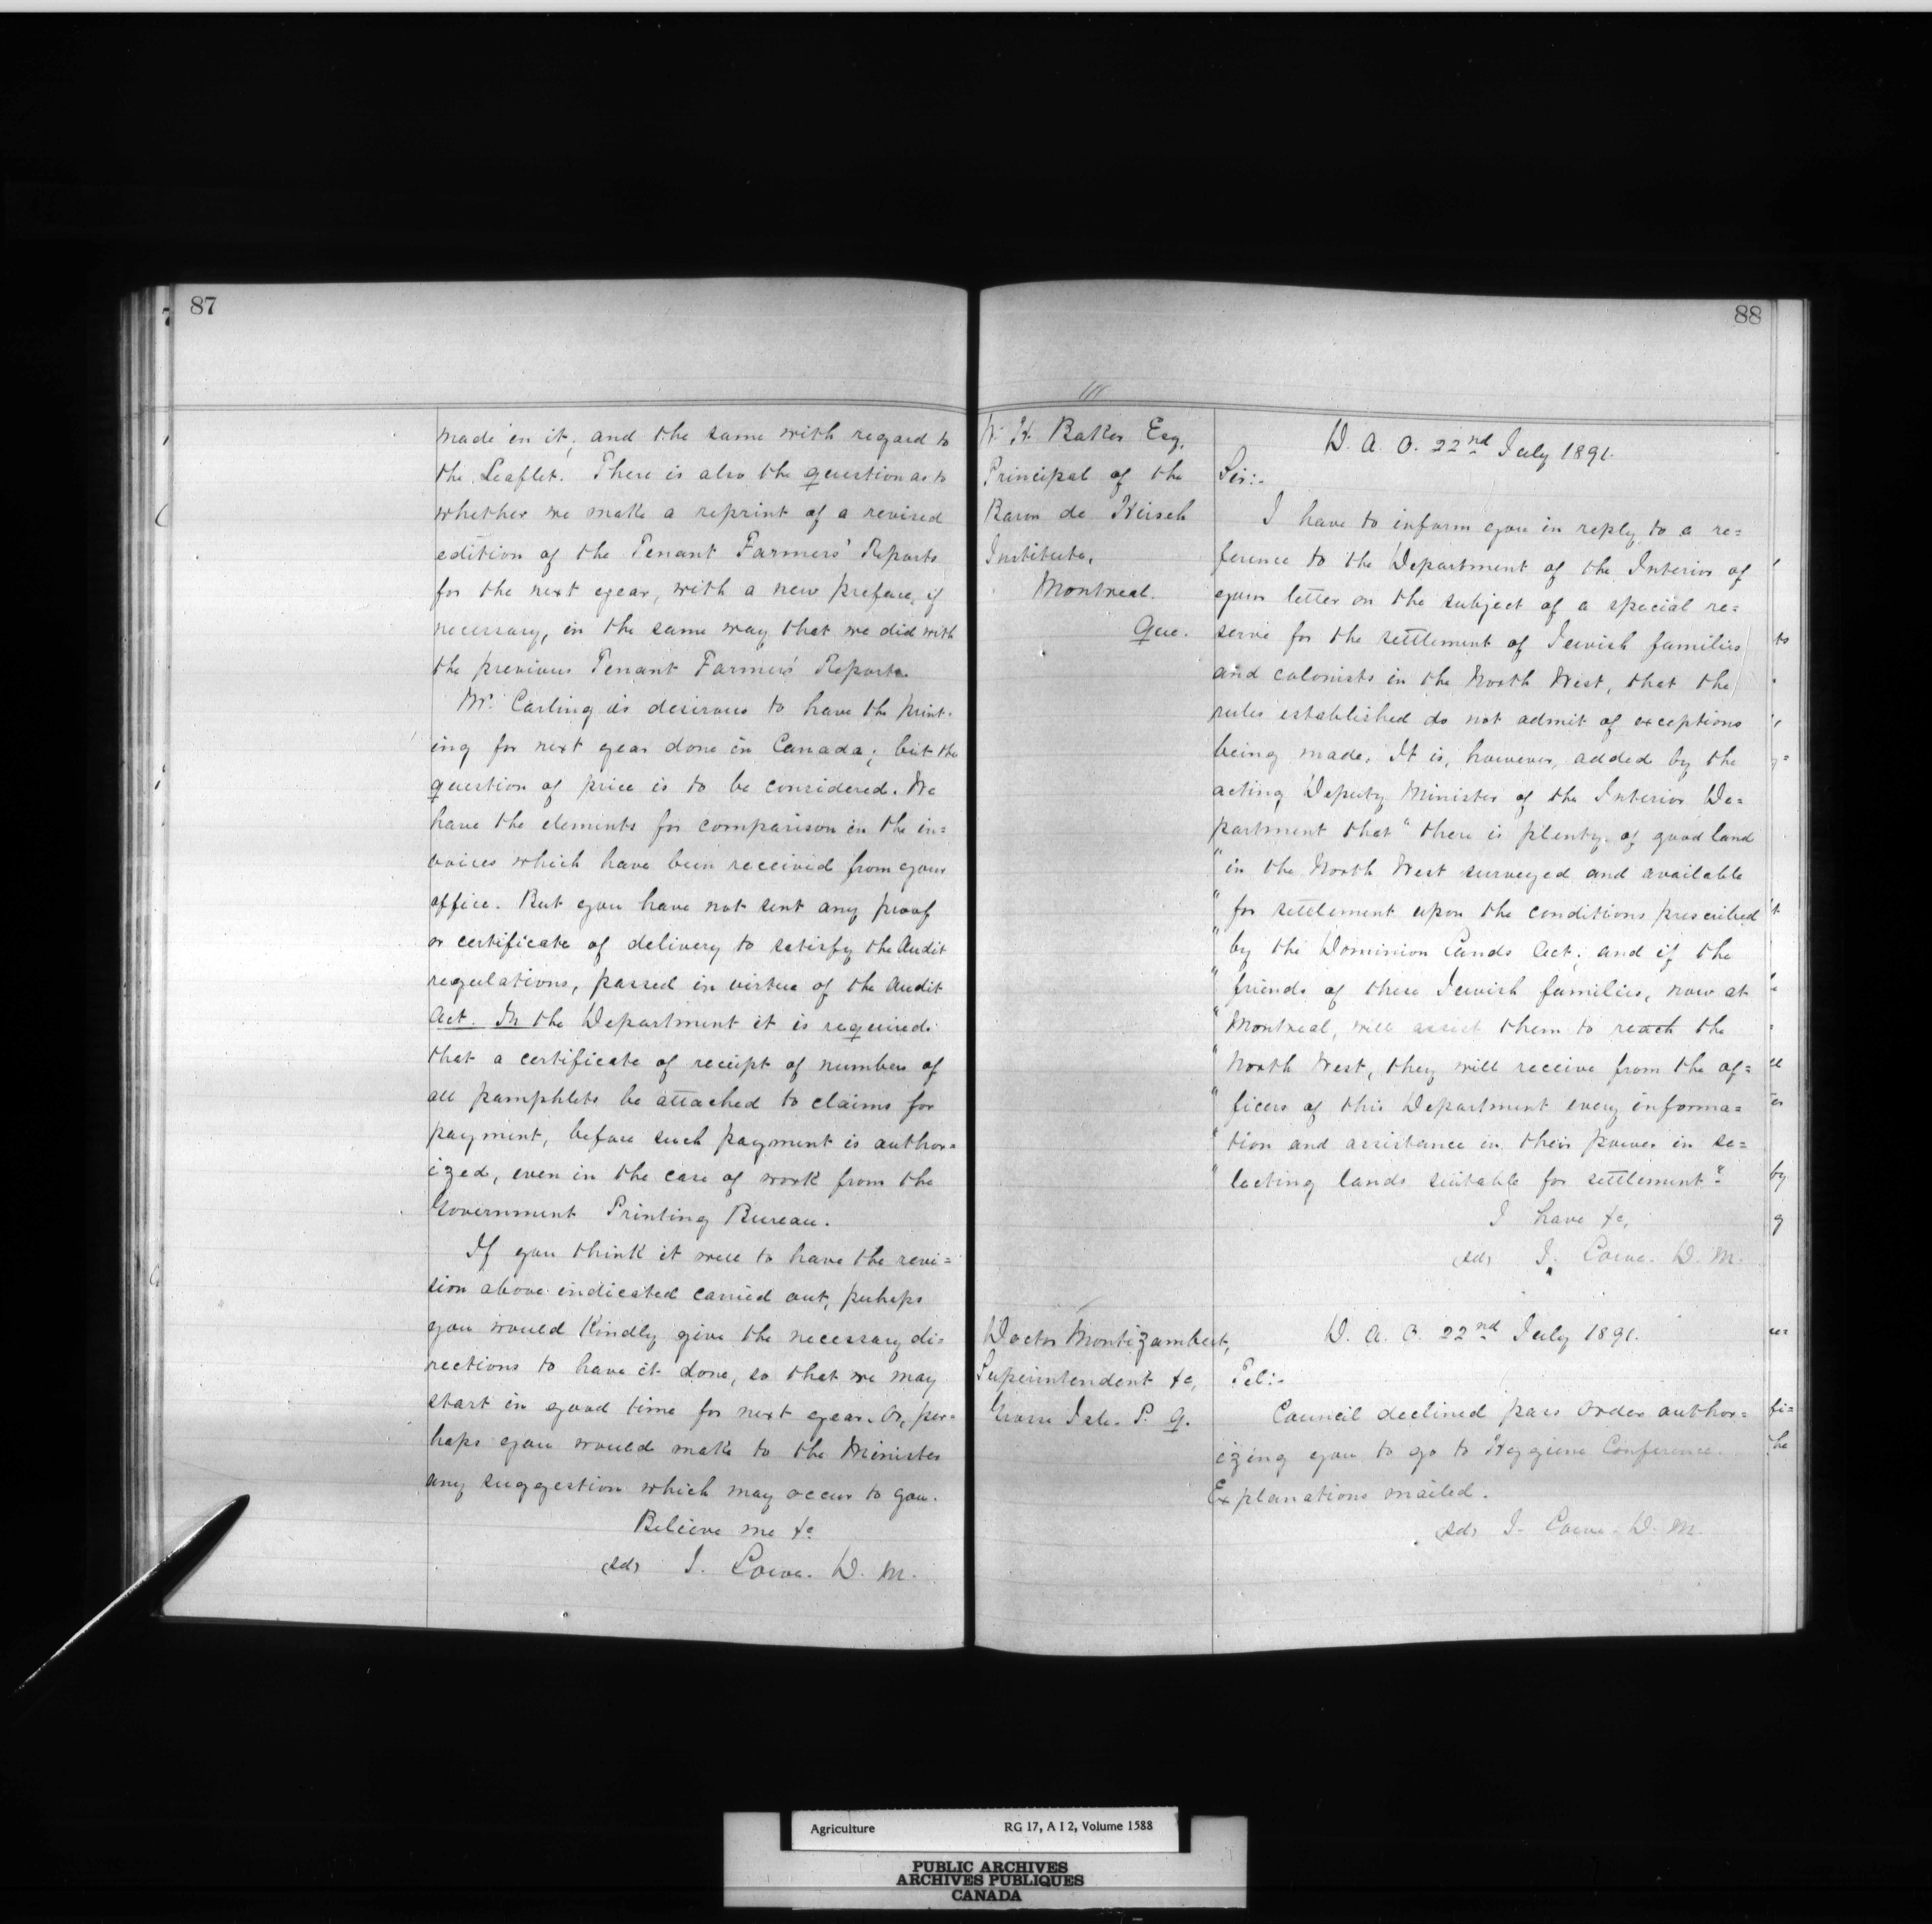 87
made in it; and the same with regard to
the Leaflet. There is also the question as to
whether we make a reprint of a revised
edition of the Tenant Farmers' Reports
for the next year, with a new preface, if
necessary, in the same way that we did with
the previous Tenant Farmers' Reports.
Mr. Carling is desirous to have the print-
ing for next year done in Canada; but the
question of price is to be considered. We
have the elements for comparison in the in=
voices which have been received from your
office. But you have not sent any proof
or certificate of delivery to satisfy the Audit
regulations, passed in virtue of the Audit
Act. In the Department it is required
that a certificate of receipt of numbers of
all pamphlets be attached to claims for
payment, before such payment is author=
ized, even in the case of work from the
Government Printing Bureau.
If you think it well to have the revi=
sion above indicated carried out, perhaps
you would kindly give the necessary di=
rections to have it done, so that we may
start in good time for next year. Or, per=
haps you would make to the Minister
any suggestion which may occur to you.
Believe me &c
(sd) J. Lowe. D. M.
88
W. H. Baker Esq.
Principal of the
Baron de Hirsch
Institute,
Montreal.
Que.
D. A. O. 22nd July 1891.
Sir:-
I have to inform you in reply to a re=
ference to the Department of the Interior of
your letter on the subject of a special re=
serve for the settlement of Jewish families
and colonists in the North West, that the
rules established do not admit of exceptions
being made. It is, however, added by the
acting Deputy Minister of the Interior De=
partment that "there is plenty of good land
"in the North West surveyed and available
"for settlement upon the conditions prescribed
"by the Dominion Lands Act; and if the
"friends of these Jewish families, now at
"Montreal, will assist them to reach the
"North West, they will receive from the of=
"ficers of this Department every informa=
"tion and assistance in their power in se=
"lecting lands suitable for settlement."
I have &c,
(sd) J. Lowe. D. M.
Doctor Montizambert,
Superintendent &c,
Grosse Isle. P. Q.
D. A. O. 22nd July 1891.
Tel:-
Council declined pass order author=
izing you to go to Hygiene Conference.
Explanations mailed.
(sd) J. Lowe. D. M.
Agriculture RG 17, A I 2, Volume 1588
PUBLIC ARCHIVES
ARCHIVES PUBLIQUES
CANADA